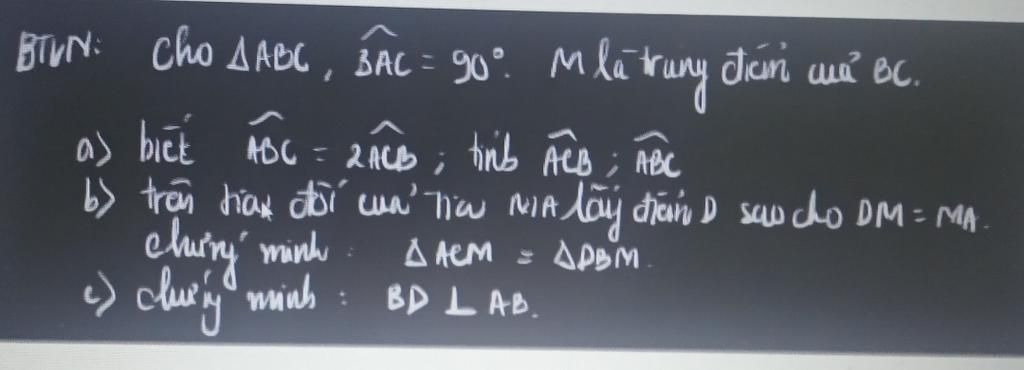 BTVN: Cho ΔABC, \widehat{BAC} = 90°. M là trung điểm của BC.
a) biết \widehat{ABC} = 2\widehat{ACB} ; tính \widehat{ACB} ; \widehat{ABC}
b) trên tia đối của tia MA lấy điểm D sao cho DM = MA.
chứng minh : ΔACM = ΔDBM.
c) chứng minh : BD ⊥ AB.